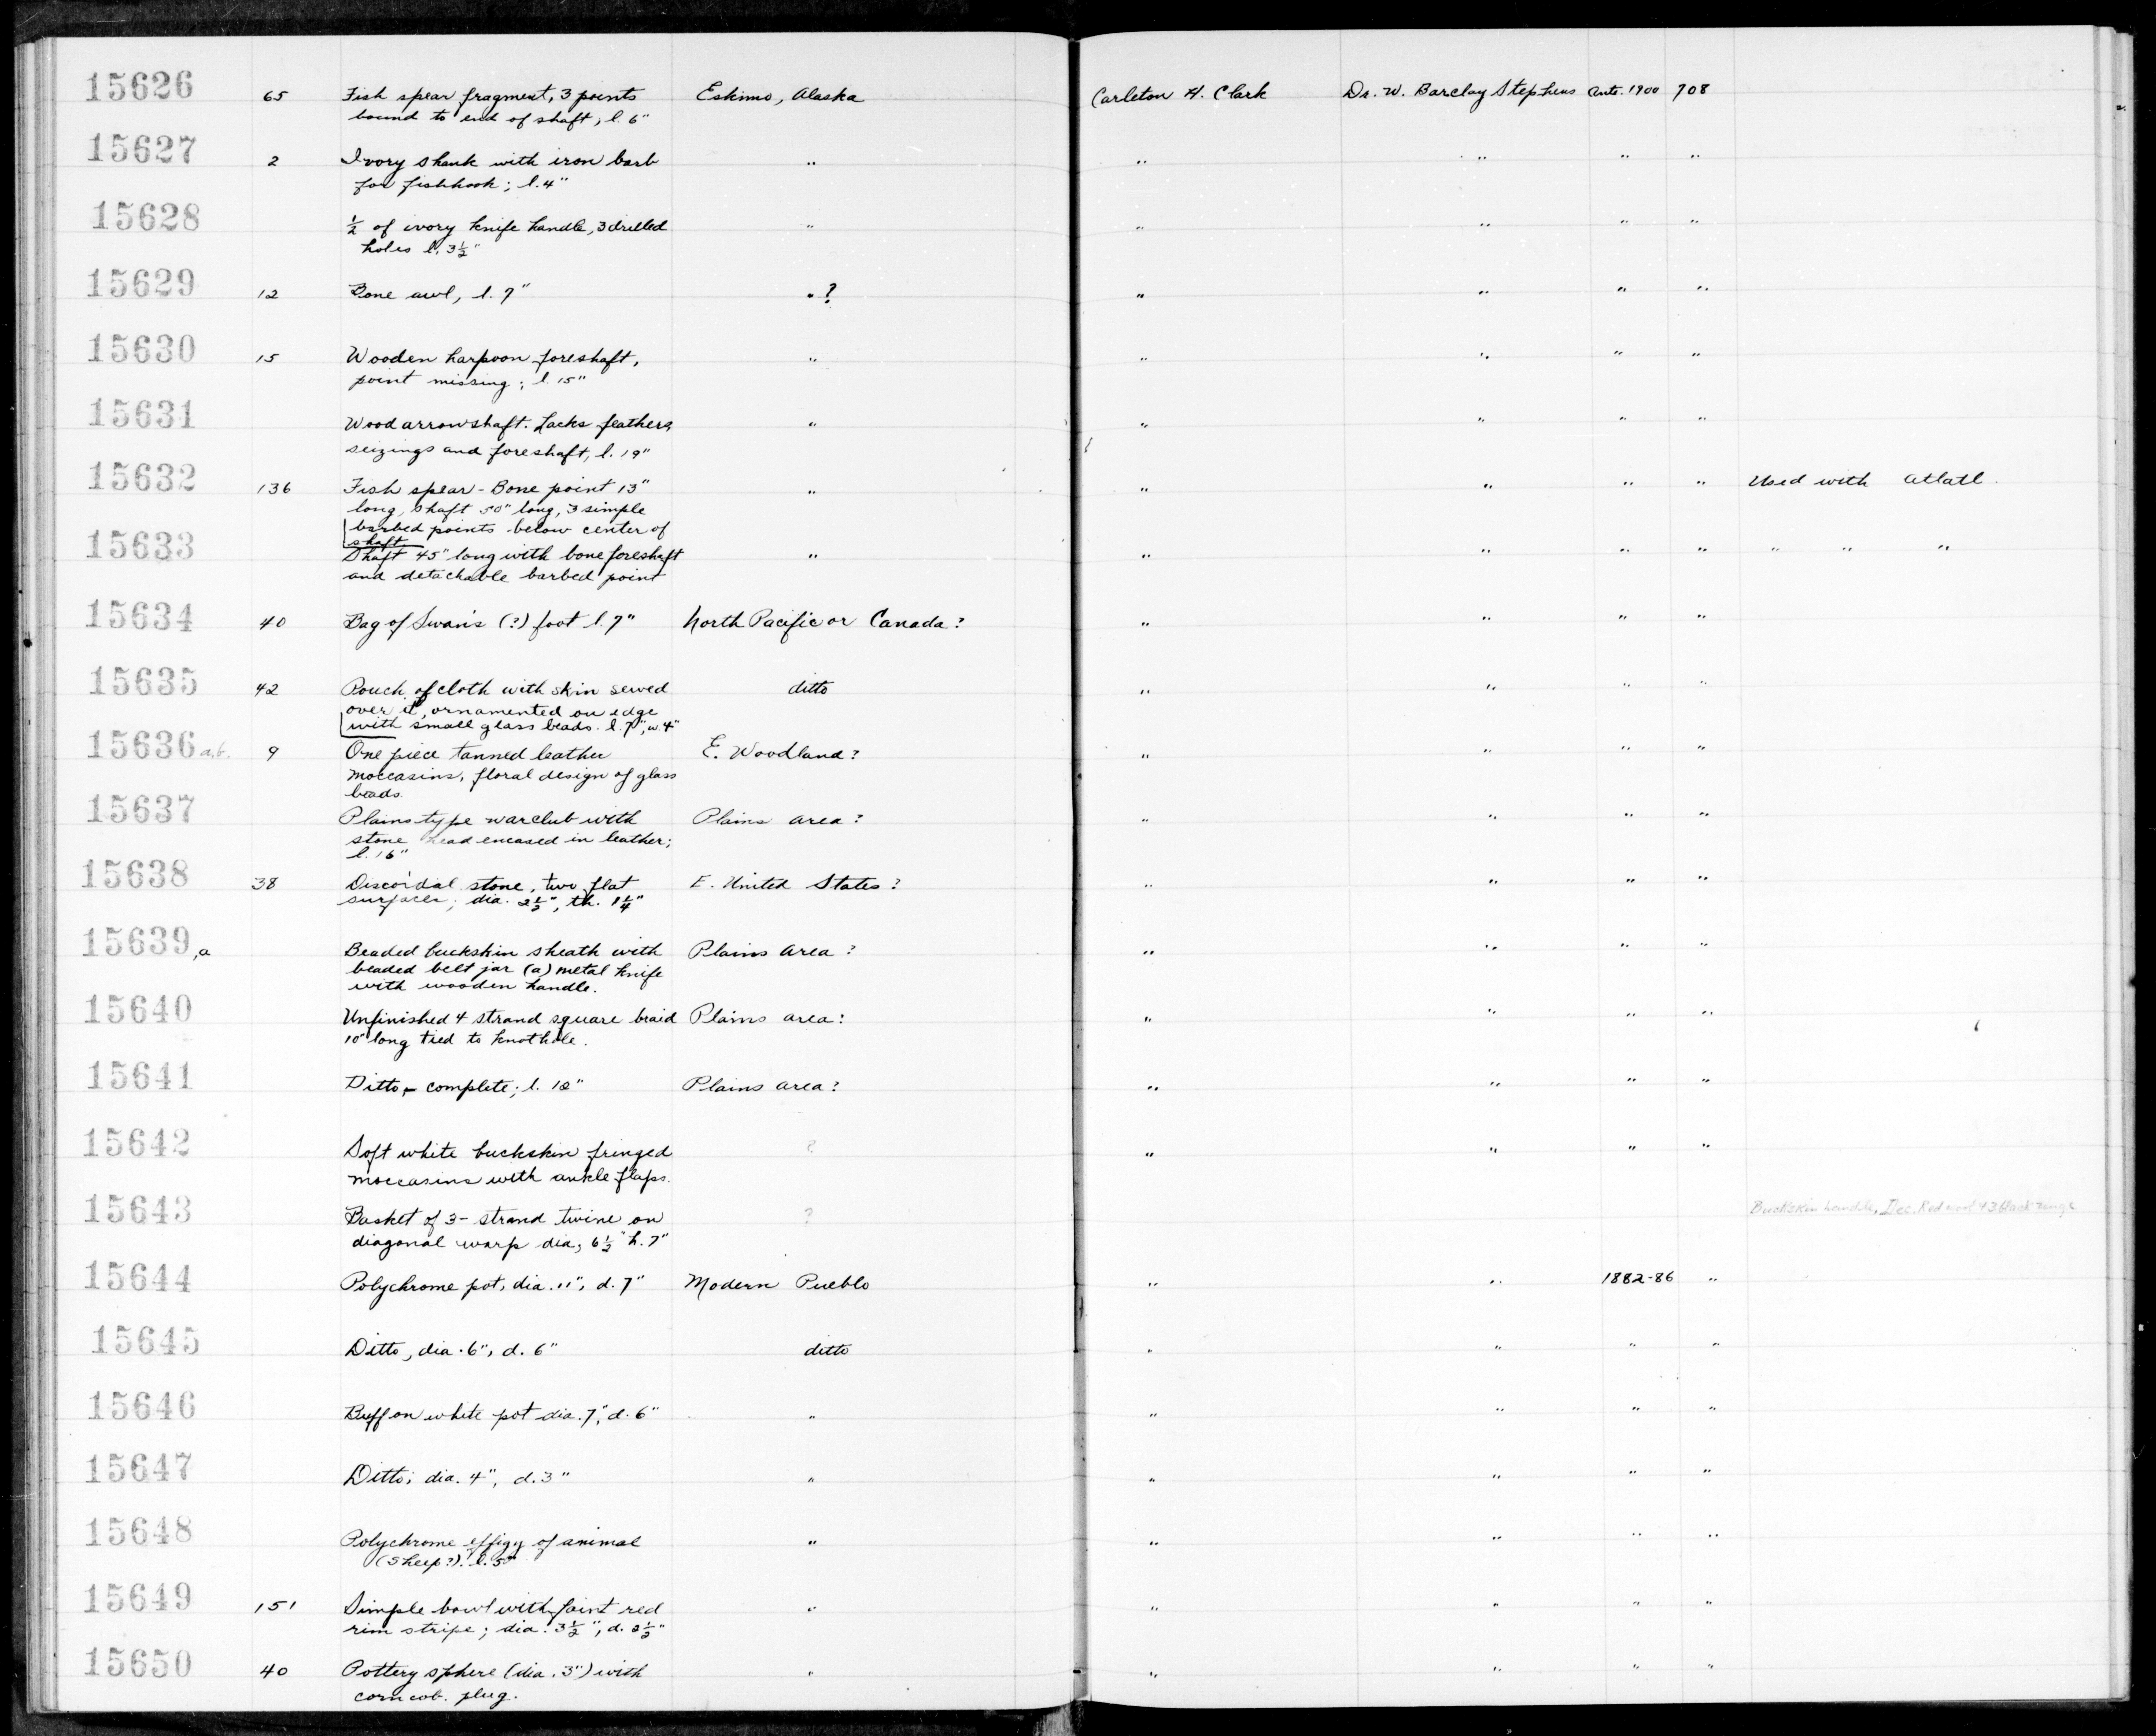 15626 65 Fish spear fragment, 3 points Eskimo, Alaska Carleton H. Clark Dr. W. Barclay Stephens Ante. 1900 708
bound to end of shaft, l. 6"
15627 2 Ivory shank with iron barb " " " " "
for fishhook; l. 4"
15628 ½ of ivory knife handle, 3 drilled " " " " "
holes l. 3½"
15629 12 Bone awl, l. 7" "? " " " "
15630 15 Wooden harpoon foreshaft, " " " " "
point missing; l. 15"
15631 Wood arrowshaft. Lacks feathers, " " " " "
seizings and foreshaft, l. 19"
15632 136 Fish spear - Bone point 13" " " " " " Used with atlatl.
long, shaft 50" long, 3 simple
barbed points below center of
shaft.
15633 Shaft 45" long with bone foreshaft " " " " " " " "
and detachable barbed point
15634 40 Bag of Swan's (?) foot l. 7" North Pacific or Canada? " " " "
15635 42 Pouch of cloth with skin sewed ditto " " " "
over it, ornamented on edge
with small glass beads. l. 7", w. 4"
15636 a,b. 9 One piece tanned leather E. Woodland? " " " "
moccasins, floral design of glass
beads.
15637 Plains type warclub with Plains area? " " " "
stone head encased in leather;
l. 16"
15638 38 Discoidal stone, two flat E. United States? " " " "
surfaces; dia. 2½", th. 1¼"
15639,a Beaded buckskin sheath with Plains area? " " " "
beaded belt jar (a) metal knife
with wooden handle.
15640 Unfinished 4 strand square braid Plains area? " " " "
10" long tied to knothole.
15641 Ditto - complete; l. 12" Plains area? " " " "
15642 Soft white buckskin fringed ? " " " "
moccasins with ankle flaps.
15643 Basket of 3- strand twine on ? Buckskin handle, Dec. Red and 3 black rings
diagonal warp dia, 6½" h. 7"
15644 Polychrome pot, dia. 11", d. 7" Modern Pueblo " " 1882-86 "
15645 Ditto, dia. 6", d. 6" ditto " " " "
15646 Buff on white pot dia. 7", d. 6" " " " " "
15647 Ditto; dia. 4", d. 3" " " " " "
15648 Polychrome effigy of animal " " " " "
(sheep?). l. 5"
15649 151 Simple bowl with faint red " " " " "
rim stripe; dia. 3½", d. 2½"
15650 40 Pottery sphere (dia. 3") with " " " " "
corn cob. plug.